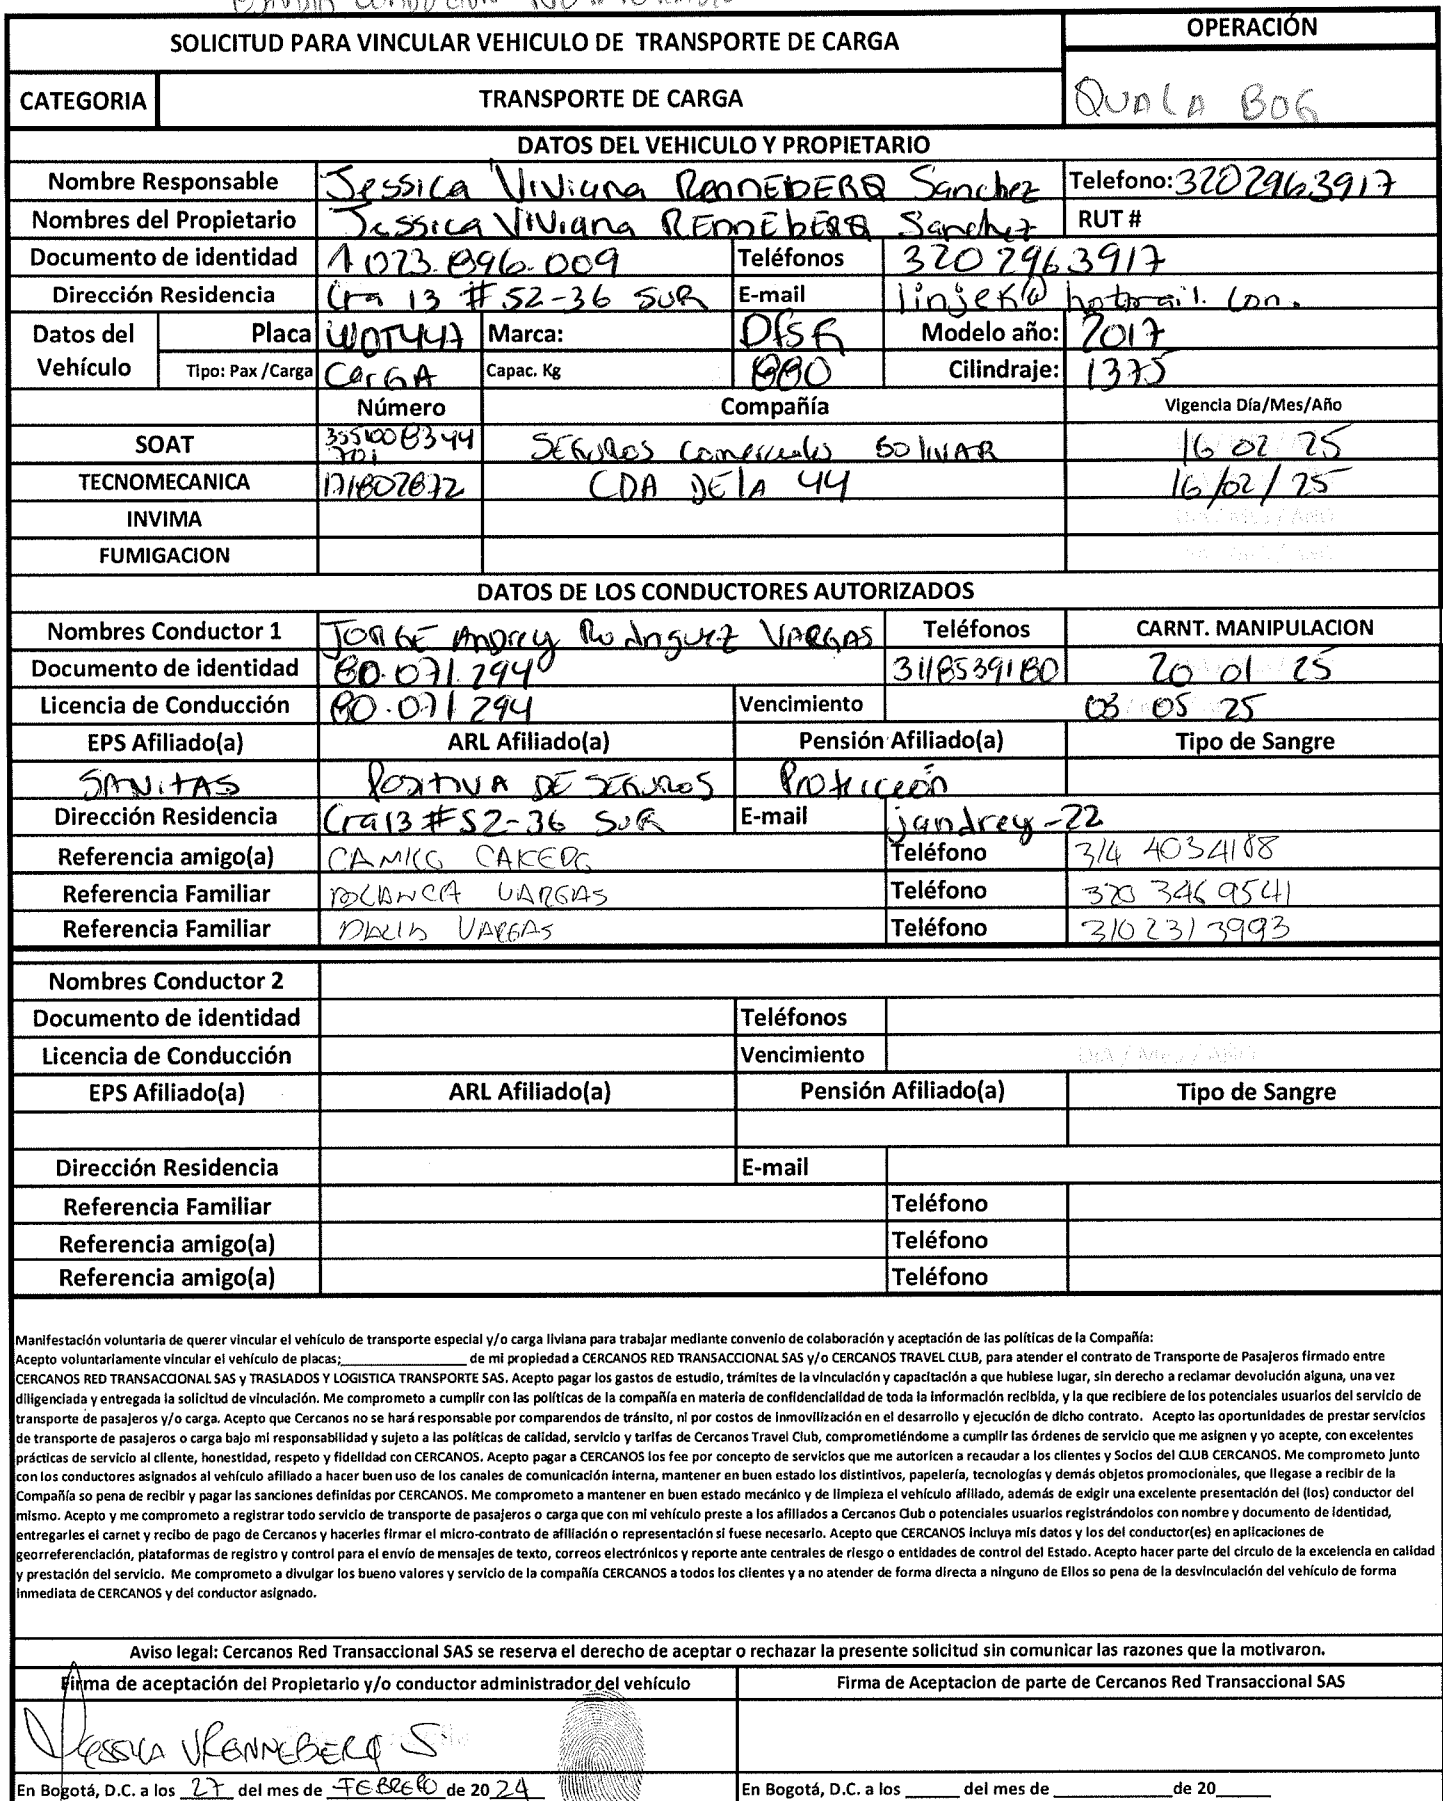 SOLICITUD PARA VINCULAR VEHICULO DE TRANSPORTE DE CARGA
OPERACIÓN
CATEGORIA TRANSPORTE DE CARGA QUALA BOG
DATOS DEL VEHICULO Y PROPIETARIO
Nombre Responsable Jessica Viviana RENNEBERG Sanchez Telefono: 3202963917
Nombres del Propietario Jessica Viviana RENNEbERG Sanchez RUT #
Documento de identidad 1023.896.009 Teléfonos 320 296 3917
Dirección Residencia Cra 13 # 52-36 SUR E-mail linjek@hotmail.con.
Datos del Vehículo Placa WOT447 Marca: DfSK Modelo año: 2017
Tipo: Pax /Carga CarGA Capac. Kg 880 Cilindraje: 1375
Número Compañía Vigencia Día/Mes/Año
SOAT SEGUROS Comerciales BOLIVAR 16 02 25
TECNOMECANICA 171807872 CDA DE lA 44 16/02/25
INVIMA
FUMIGACION
DATOS DE LOS CONDUCTORES AUTORIZADOS
Nombres Conductor 1 JORGE Andrey Rodriguez VARGAS Teléfonos CARNT. MANIPULACION
Documento de identidad 80.071.294 3118539180 20 01 25
Licencia de Conducción 80.071294 Vencimiento 03 05 25
EPS Afiliado(a) ARL Afiliado(a) Pensión Afiliado(a) Tipo de Sangre
SANITAS POSITIVA DE SEGUROS Protección
Dirección Residencia Cra 13 # 52-36 SUR E-mail jandrey-22
Referencia amigo(a) Teléfono 314 4034188
Referencia Familiar VARGAS Teléfono 320 346 9541
Referencia Familiar VARGAS Teléfono 310 231 3993
Nombres Conductor 2
Documento de identidad Teléfonos
Licencia de Conducción Vencimiento Día / Mes / Año
EPS Afiliado(a) ARL Afiliado(a) Pensión Afiliado(a) Tipo de Sangre
Dirección Residencia E-mail
Referencia Familiar Teléfono
Referencia amigo(a) Teléfono
Referencia amigo(a) Teléfono
Manifestación voluntaria de querer vincular el vehículo de transporte especial y/o carga liviana para trabajar mediante convenio de colaboración y aceptación de las políticas de la Compañía:
Acepto voluntariamente vincular el vehículo de placas;____________ de mi propiedad a CERCANOS RED TRANSACCIONAL SAS y/o CERCANOS TRAVEL CLUB, para atender el contrato de Transporte de Pasajeros firmado entre
CERCANOS RED TRANSACCIONAL SAS y TRASLADOS Y LOGISTICA TRANSPORTE SAS. Acepto pagar los gastos de estudio, trámites de la vinculación y capacitación a que hubiese lugar, sin derecho a reclamar devolución alguna, una vez
diligenciada y entregada la solicitud de vinculación. Me comprometo a cumplir con las políticas de la compañía en materia de confidencialidad de toda la información recibida, y la que recibiere de los potenciales usuarios del servicio de
transporte de pasajeros y/o carga. Acepto que Cercanos no se hará responsable por comparendos de tránsito, ni por costos de inmovilización en el desarrollo y ejecución de dicho contrato. Acepto las oportunidades de prestar servicios
de transporte de pasajeros o carga bajo mi responsabilidad y sujeto a las políticas de calidad, servicio y tarifas de Cercanos Travel Club, comprometiéndome a cumplir las órdenes de servicio que me asignen y yo acepte, con excelentes
prácticas de servicio al cliente, honestidad, respeto y fidelidad con CERCANOS. Acepto pagar a CERCANOS los fee por concepto de servicios que me autoricen a recaudar a los clientes y Socios del CLUB CERCANOS. Me comprometo junto
con los conductores asignados al vehículo afiliado a hacer buen uso de los canales de comunicación interna, mantener en buen estado los distintivos, papelería, tecnologías y demás objetos promocionales, que llegase a recibir de la
Compañía so pena de recibir y pagar las sanciones definidas por CERCANOS. Me comprometo a mantener en buen estado mecánico y de limpieza el vehículo afiliado, además de exigir una excelente presentación del (los) conductor del
mismo. Acepto y me comprometo a registrar todo servicio de transporte de pasajeros o carga que con mi vehículo preste a los afiliados a Cercanos Club o potenciales usuarios registrándolos con nombre y documento de identidad,
entregarles el carnet y recibo de pago de Cercanos y hacerles firmar el micro-contrato de afiliación o representación si fuese necesario. Acepto que CERCANOS incluya mis datos y los del conductor(es) en aplicaciones de
georreferenciación, plataformas de registro y control para el envío de mensajes de texto, correos electrónicos y reporte ante centrales de riesgo o entidades de control del Estado. Acepto hacer parte del circulo de la excelencia en calidad
y prestación del servicio. Me comprometo a divulgar los bueno valores y servicio de la compañía CERCANOS a todos los clientes y a no atender de forma directa a ninguno de Ellos so pena de la desvinculación del vehículo de forma
inmediata de CERCANOS y del conductor asignado.
Aviso legal: Cercanos Red Transaccional SAS se reserva el derecho de aceptar o rechazar la presente solicitud sin comunicar las razones que la motivaron.
Firma de aceptación del Propietario y/o conductor administrador del vehículo Firma de Aceptacion de parte de Cercanos Red Transaccional SAS
Jessica VRENNEBERG S
En Bogotá, D.C. a los 27 del mes de FEBRERO de 2024 En Bogotá, D.C. a los ______ del mes de ____________de 20______